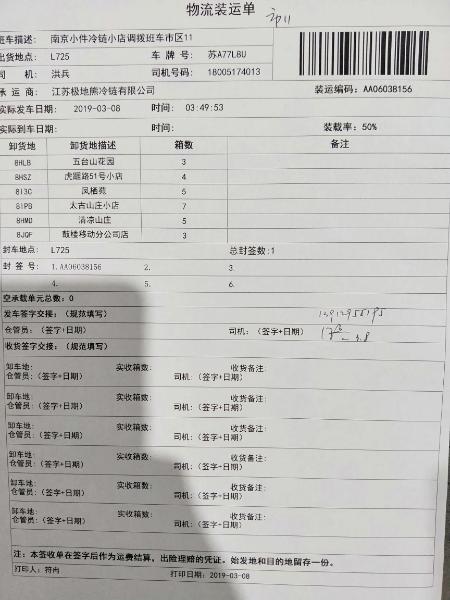 物流装运单
班车描述: 南京小件冷链小店调拨班车市区11
出货地点: L725 车 牌 号: 苏A77L8U
司 机: 洪兵 司机号码: 18005174013
承 运 商: 江苏极地熊冷链有限公司 装运编码: AA06038156
实际发车日期: 2019-03-08 时间: 03:49:53
实际到车日期: 时间: 装载率: 50%
卸货地 卸货地描述 箱数 备注
8HLB 五台山花园 3
8HSZ 虎踞路51号小店 4
8I3C 凤栖苑 5
8IPB 太古山庄小店 7
8HMD 清凉山庄 5
8JQF 鼓楼移动分公司店 3
封车地点: L725 总封签数:1
封 签 号: 1.AA06038156 2. 3.
4. 5. 6.
空承载单元总数: 0
发车签字交接: (规范填写)
仓管员: (签字+日期) 司机: (签字+日期)
收货签字交接: (规范填写)
卸车地: 实收箱数: 收货备注:
仓管员: (签字+日期) 司机: (签字+日期)
卸车地: 实收箱数: 收货备注:
仓管员: (签字+日期) 司机: (签字+日期)
卸车地: 实收箱数: 收货备注:
仓管员: (签字+日期) 司机: (签字+日期)
卸车地: 实收箱数: 收货备注:
仓管员: (签字+日期) 司机: (签字+日期)
卸车地: 实收箱数: 收货备注:
仓管员: (签字+日期) 司机: (签字+日期)
卸车地: 实收箱数: 收货备注:
仓管员: (签字+日期) 司机: (签字+日期)
注: 本签收单在签字后作为运费结算, 出险理赔的凭证。始发地和目的地留存一份。
打印人: 符冉 打印日期: 2019-03-08